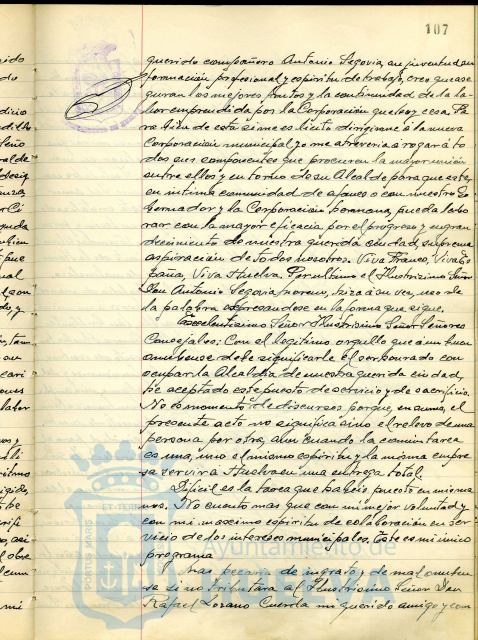 107
querido compañero Antonio Segovia, su juventud su
formación profesional y espíritu de trabajo, creo que ase
guran los mejores frutos y la continuidad de la la-
bor emprendida por la Corporación que hoy cesa. Pa
ra bien de esta si me es lícito dirigirme a la nueva
Corporación municipal yo me atrevería a rogar a to
dos sus componentes que procuren la mayor unión
entre ellos y en torno de su Alcalde para que este,
en íntima comunidad de afanes con nuestro Go
bernador y la Corporación hermana, pueda labo
rar con la mayor eficacia por el progreso y engran
decimiento de nuestra querida ciudad, suprema
aspiración de todos nosotros. Viva Franco, Viva Es
paña, Viva Huelva. Por último el Ilustrísimo Señor
Don Antonio Segovia Moreno, hizo a su vez, uso de
la palabra expresandose en la forma que sigue.
Excelentísimo Señor Ilustrísimo Señor Señores
Concejales: Con el legítimo orgullo que a un buen
onubense debe significarle el ser honrado con
ocupar la Alcaldía de nuestra querida ciudad,
he aceptado este puesto de servicio y de sacrificio.
No es momento de discursos porque, en suma, el
presente acto no significa sino el relevo de una
persona por otra, aun cuando la comun tarea
es una, uno el mismo espíritu y la misma empre
sa servir a Huelva en una entrega total.
Difícil es la tarea que habeis puesto en mis ma
nos. No cuento mas que con mi mejor voluntad y
con mi maximo espíritu de colaboración en ser
vicio de los intereses municipales. Este es mi unico
programa
Mas pecaría de ingrato y de mal onuben
se si no tributara al Ilustrísimo Señor Don
Rafael Lozano Cuerda mi querido amigo y com
PORTUS MARIS ET TERRAE
Ayuntamiento de
HUELVA